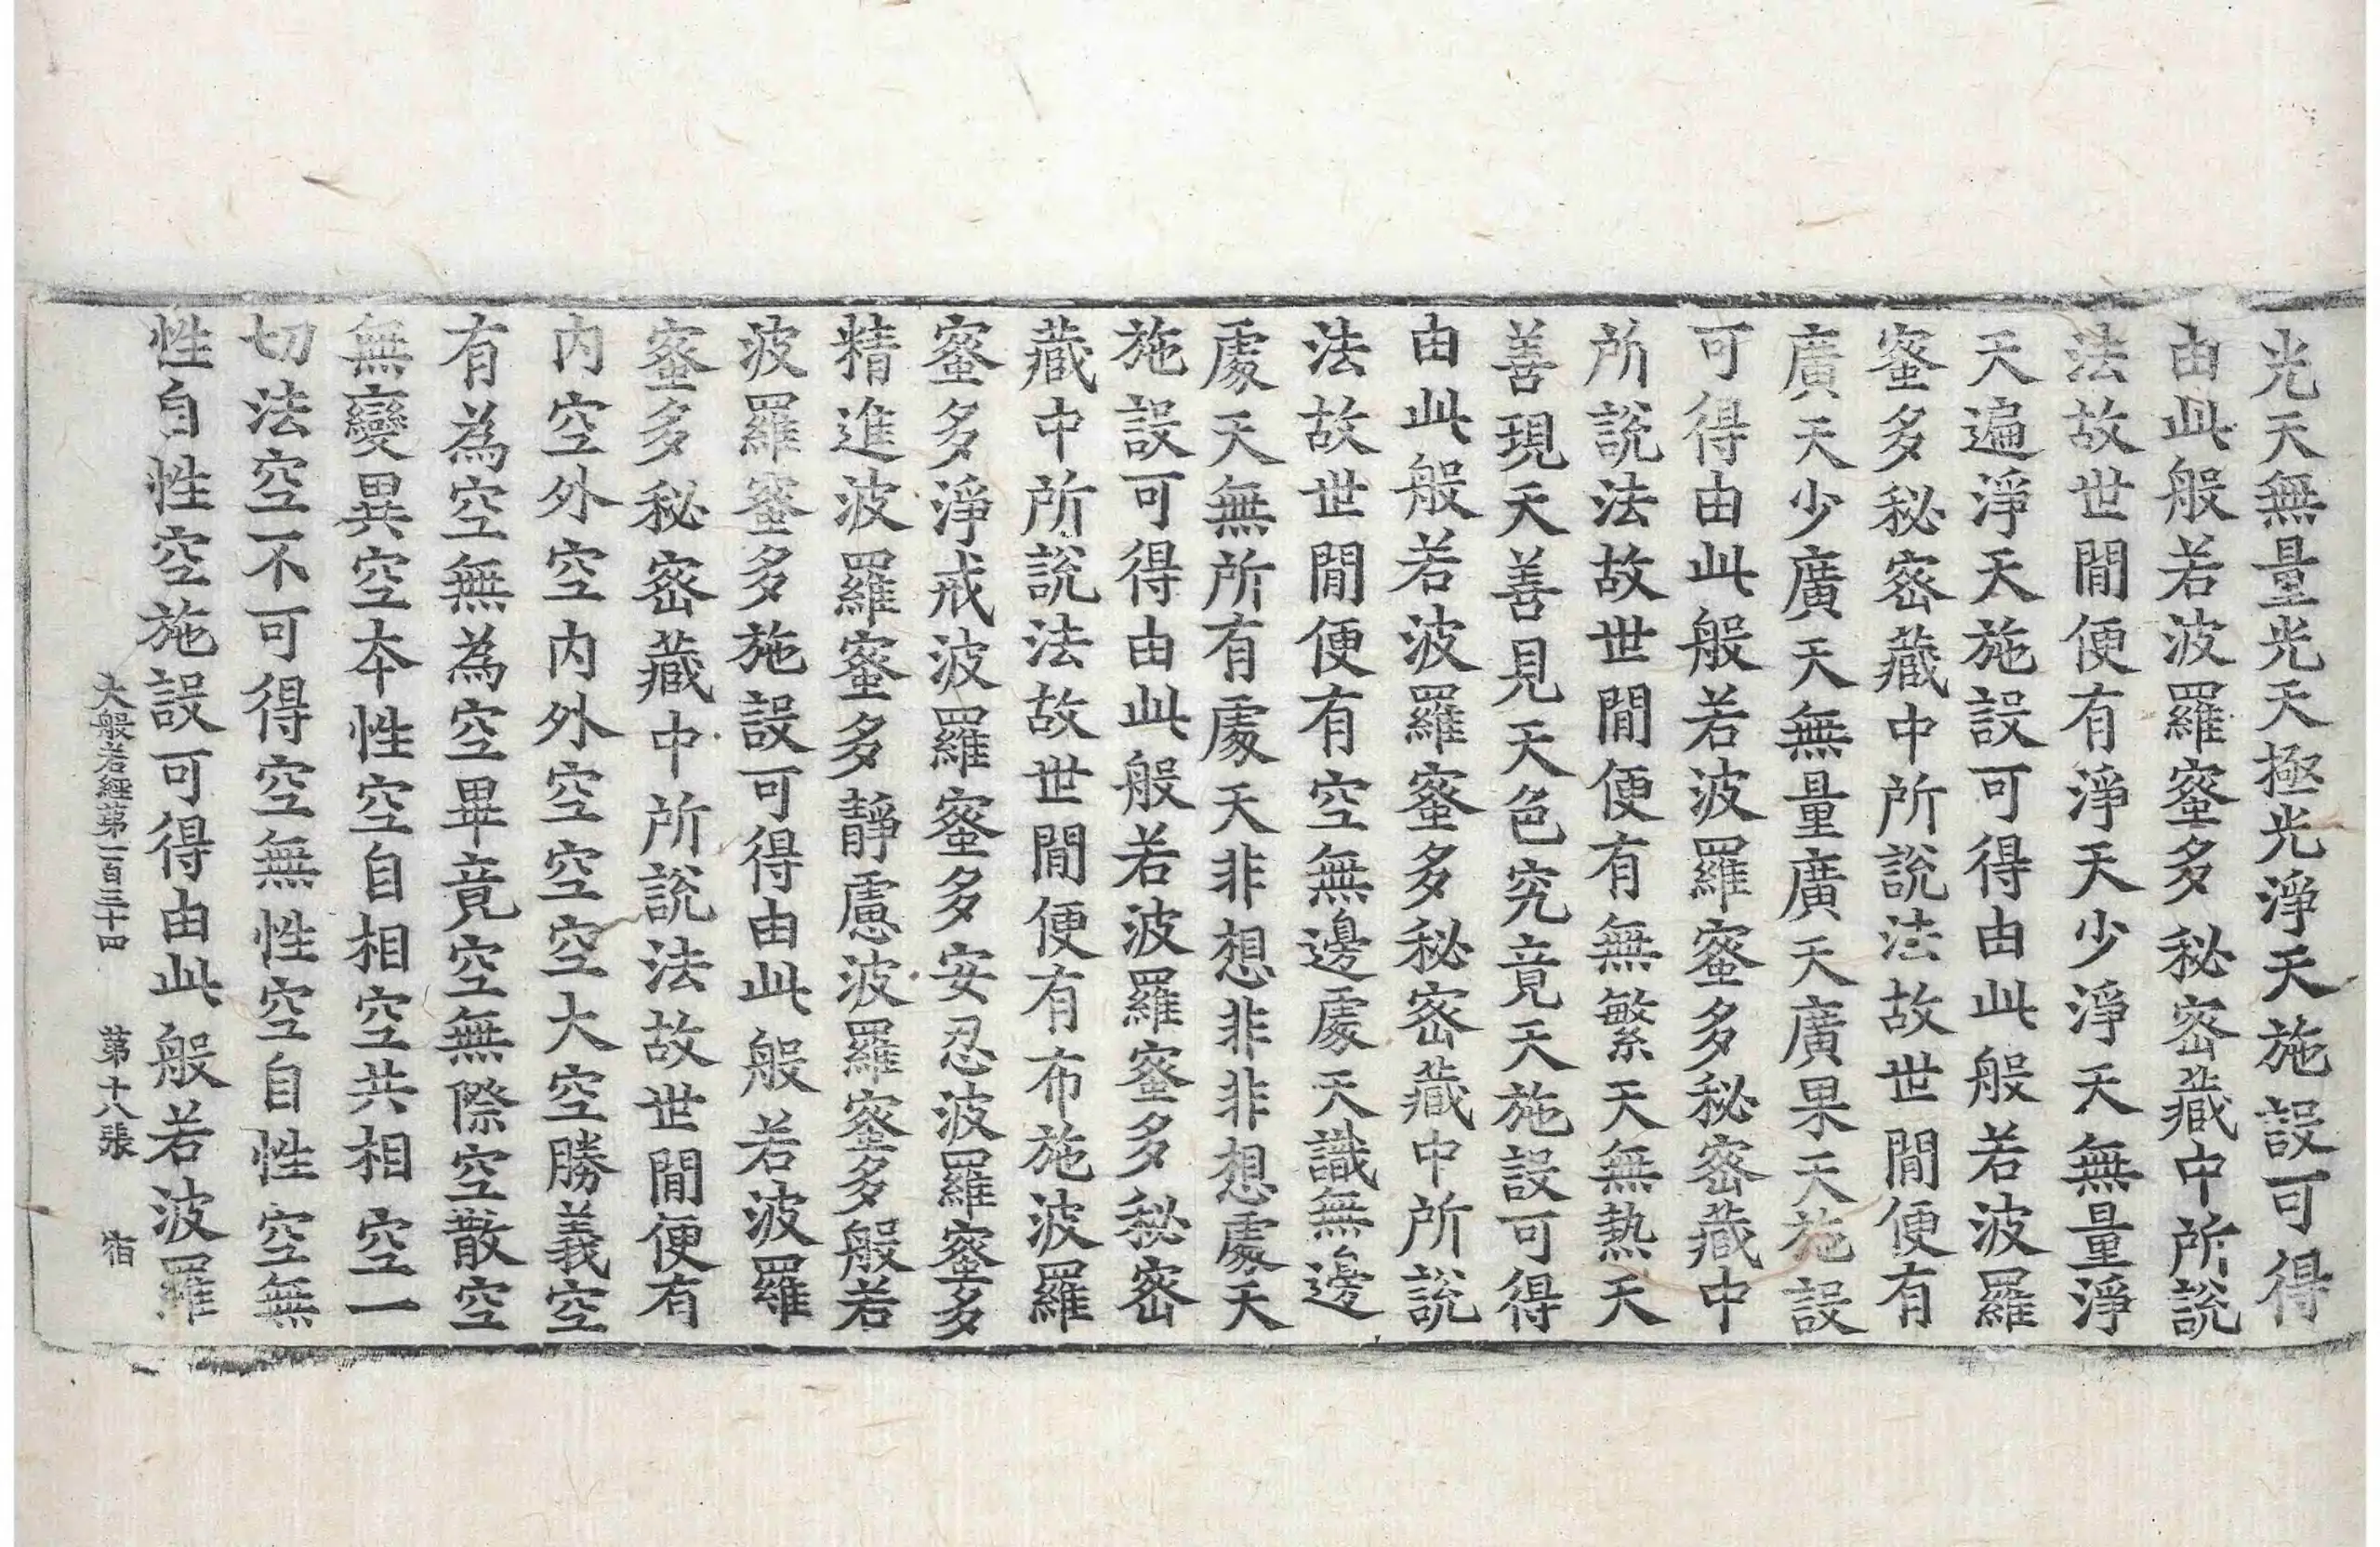 光天無量光天極光淨天施設可得
由此般若波羅蜜多秘密藏中所說
法故世閒便有淨天少淨天無量淨
天遍淨天施設可得由此般若波羅
蜜多秘密藏中所說法故世閒便有
廣天少廣天無量廣天廣果天施設
可得由此般若波羅蜜多秘密藏中
所說法故世閒便有無繁天無熱天
善現天善見天色究竟天施設可得
由此般若波羅蜜多秘密藏中所說
法故世閒便有空無邊處天識無邊
處天無所有處天非想非非想處天
施設可得由此般若波羅蜜多秘密
藏中所說法故世閒便有布施波羅
蜜多淨戒波羅蜜多安忍波羅蜜多
精進波羅蜜多靜慮波羅蜜多般若
波羅蜜多施設可得由此般若波羅
蜜多秘密藏中所說法故世閒便有
內空外空內外空空空大空勝義空
有為空無為空畢竟空無際空散空
無變異空本性空自相空共相空一
切法空不可得空無性空自性空無
性自性空施設可得由此般若波羅
大般若經第一百三十四 第十八張 宿